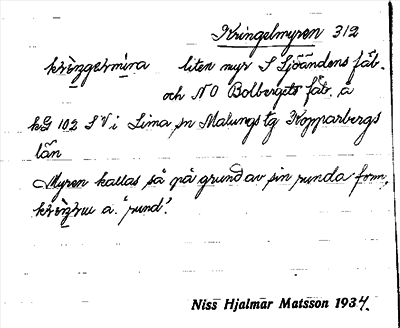 Kringelmyren 312
krìŋgermìra liten myr S Sjöändens fäb.
och NO Bolbergets fäb. å
kG 102 SV i Lima sn Malungs tg Kopparbergs
län
Myren kallas så på grund av sin runda form,
a. "rund".
Niss Hjalmar Matsson 1934.